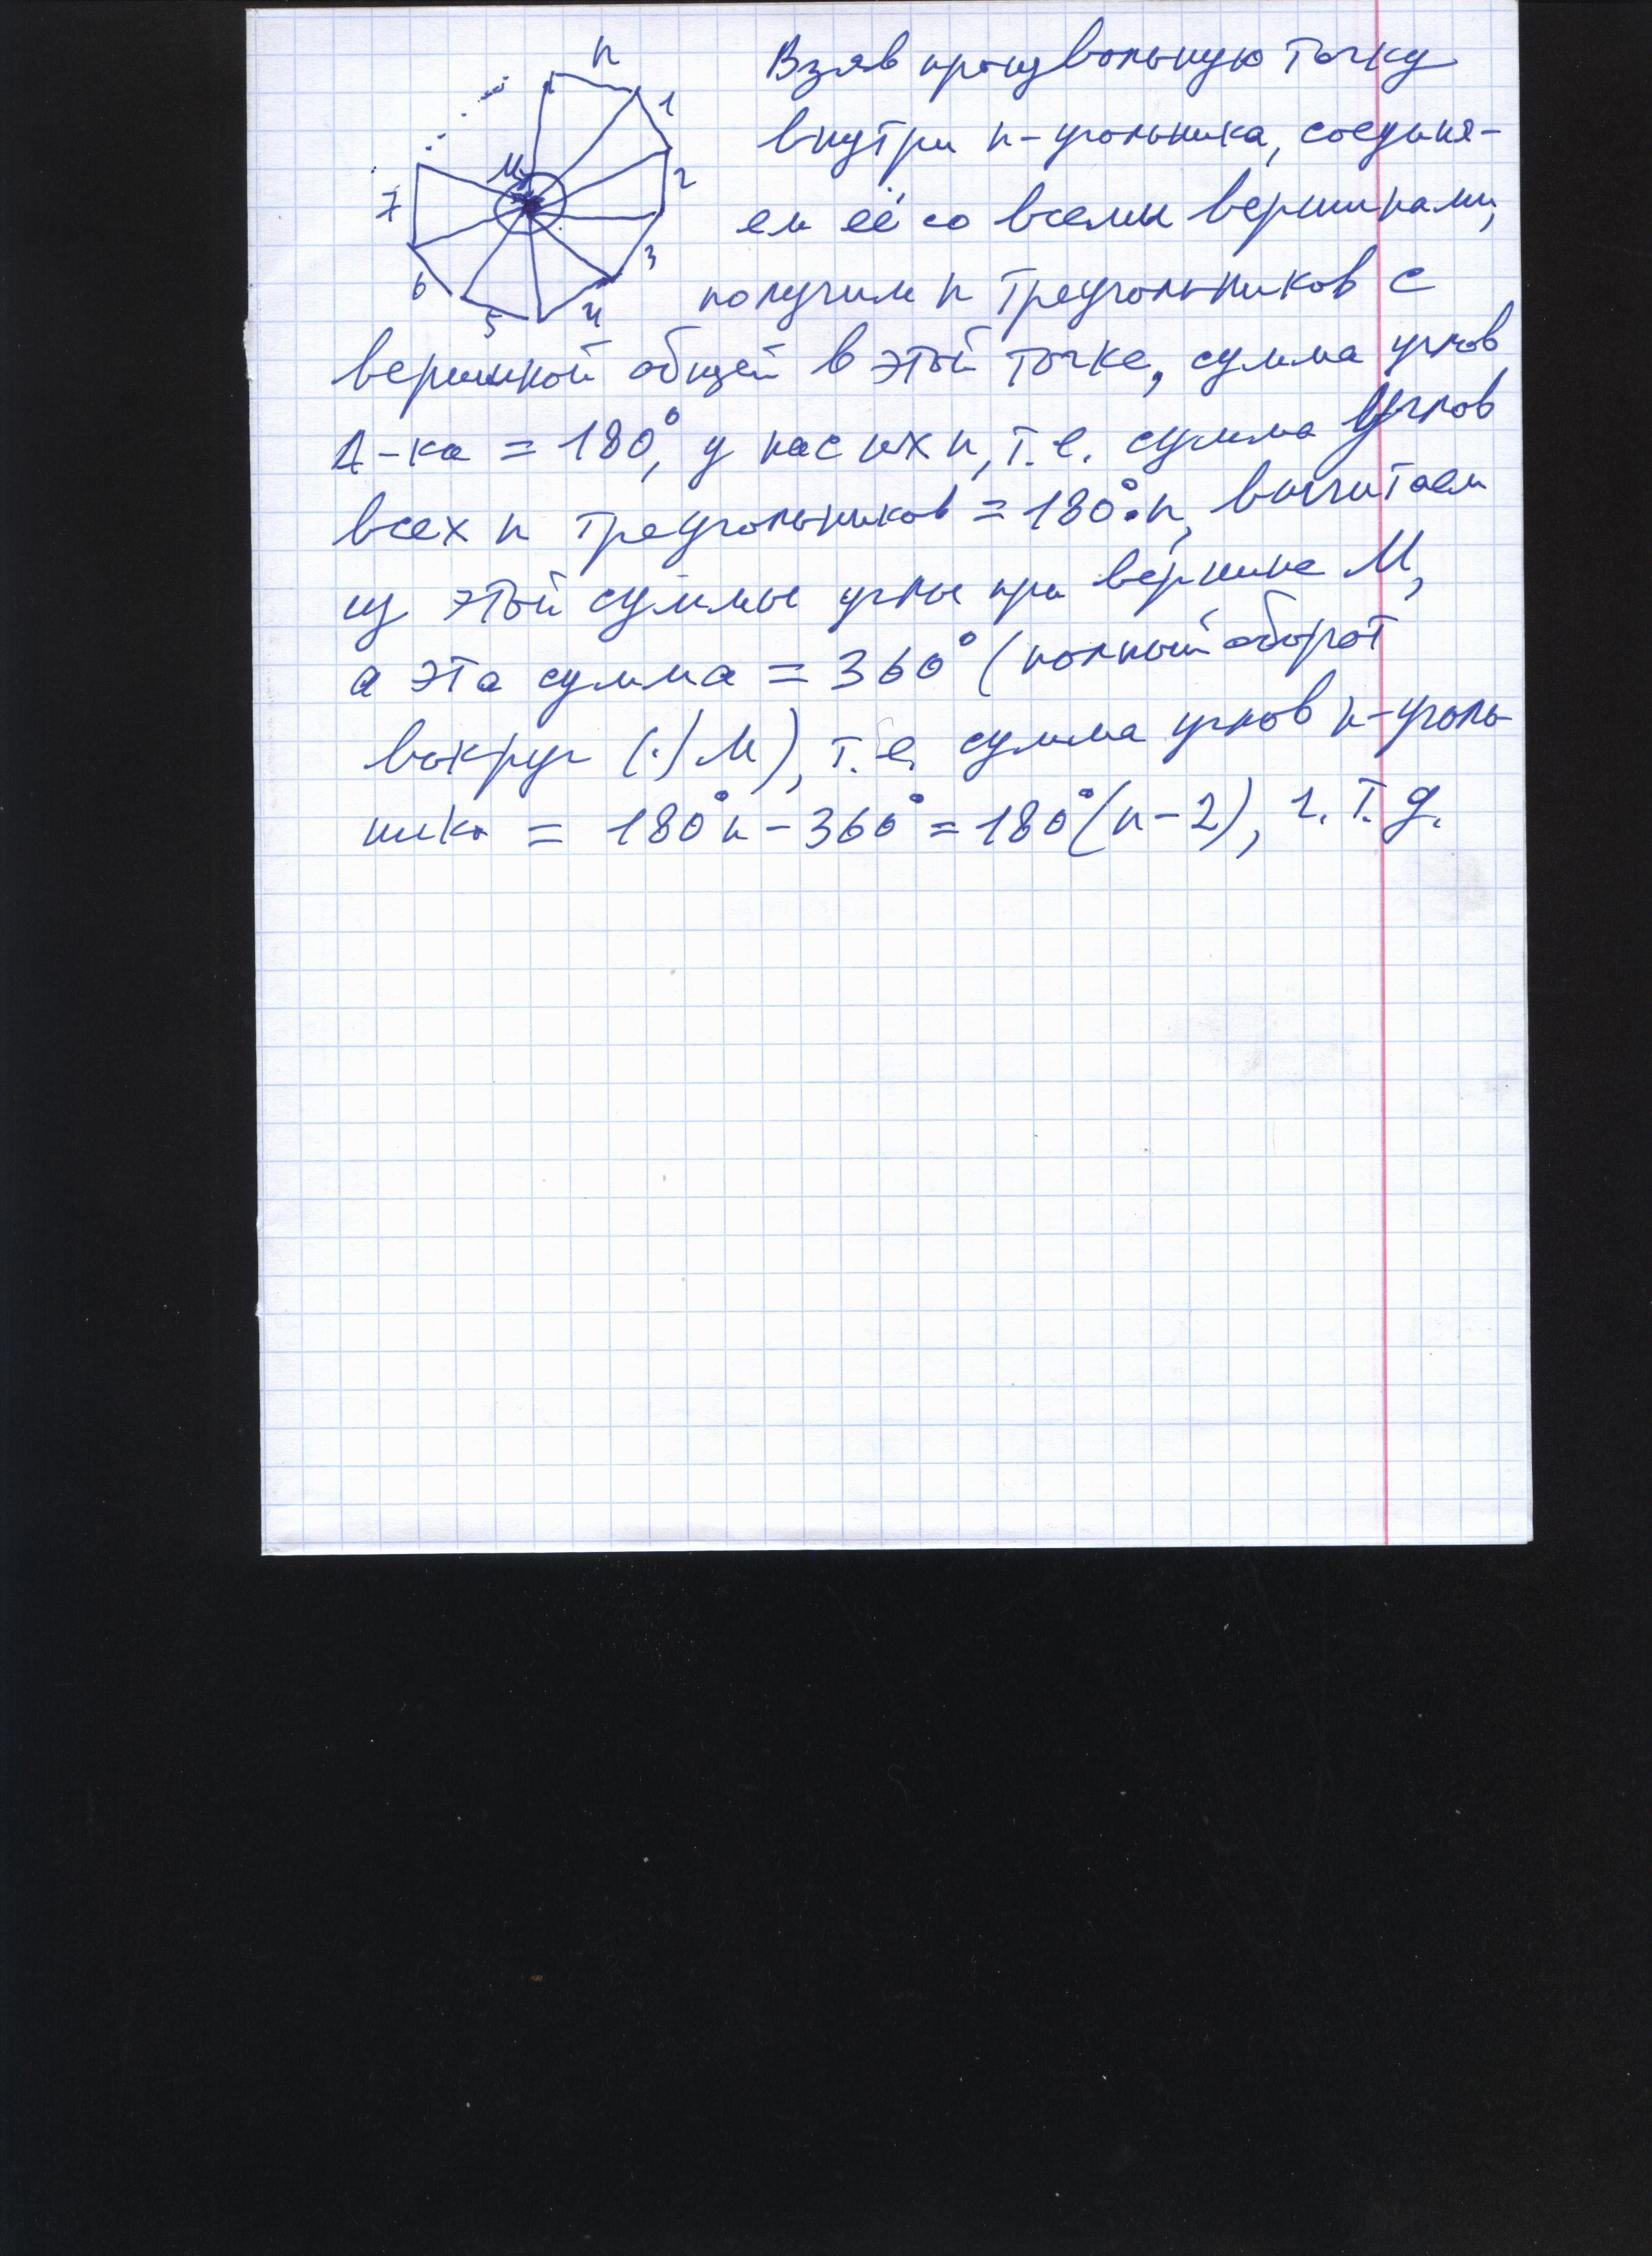 n
1
2
3
4
5
6
7
М
Взяв произвольную точку
внутри n-угольника, соединя-
ем её со всеми вершинами,
получим n треугольников с
вершиной общей в этой точке, сумма углов
Δ-ка = 180°, у нас их n, т.е. сумма углов
всех n треугольников = 180°·n, вычитаем
из этой суммы углы при вершине М,
а эта сумма = 360° (полный оборот
вокруг (·) М), т.е. сумма углов n-уголь-
ника = 180°n - 360° = 180°(n-2), ч.т.д.